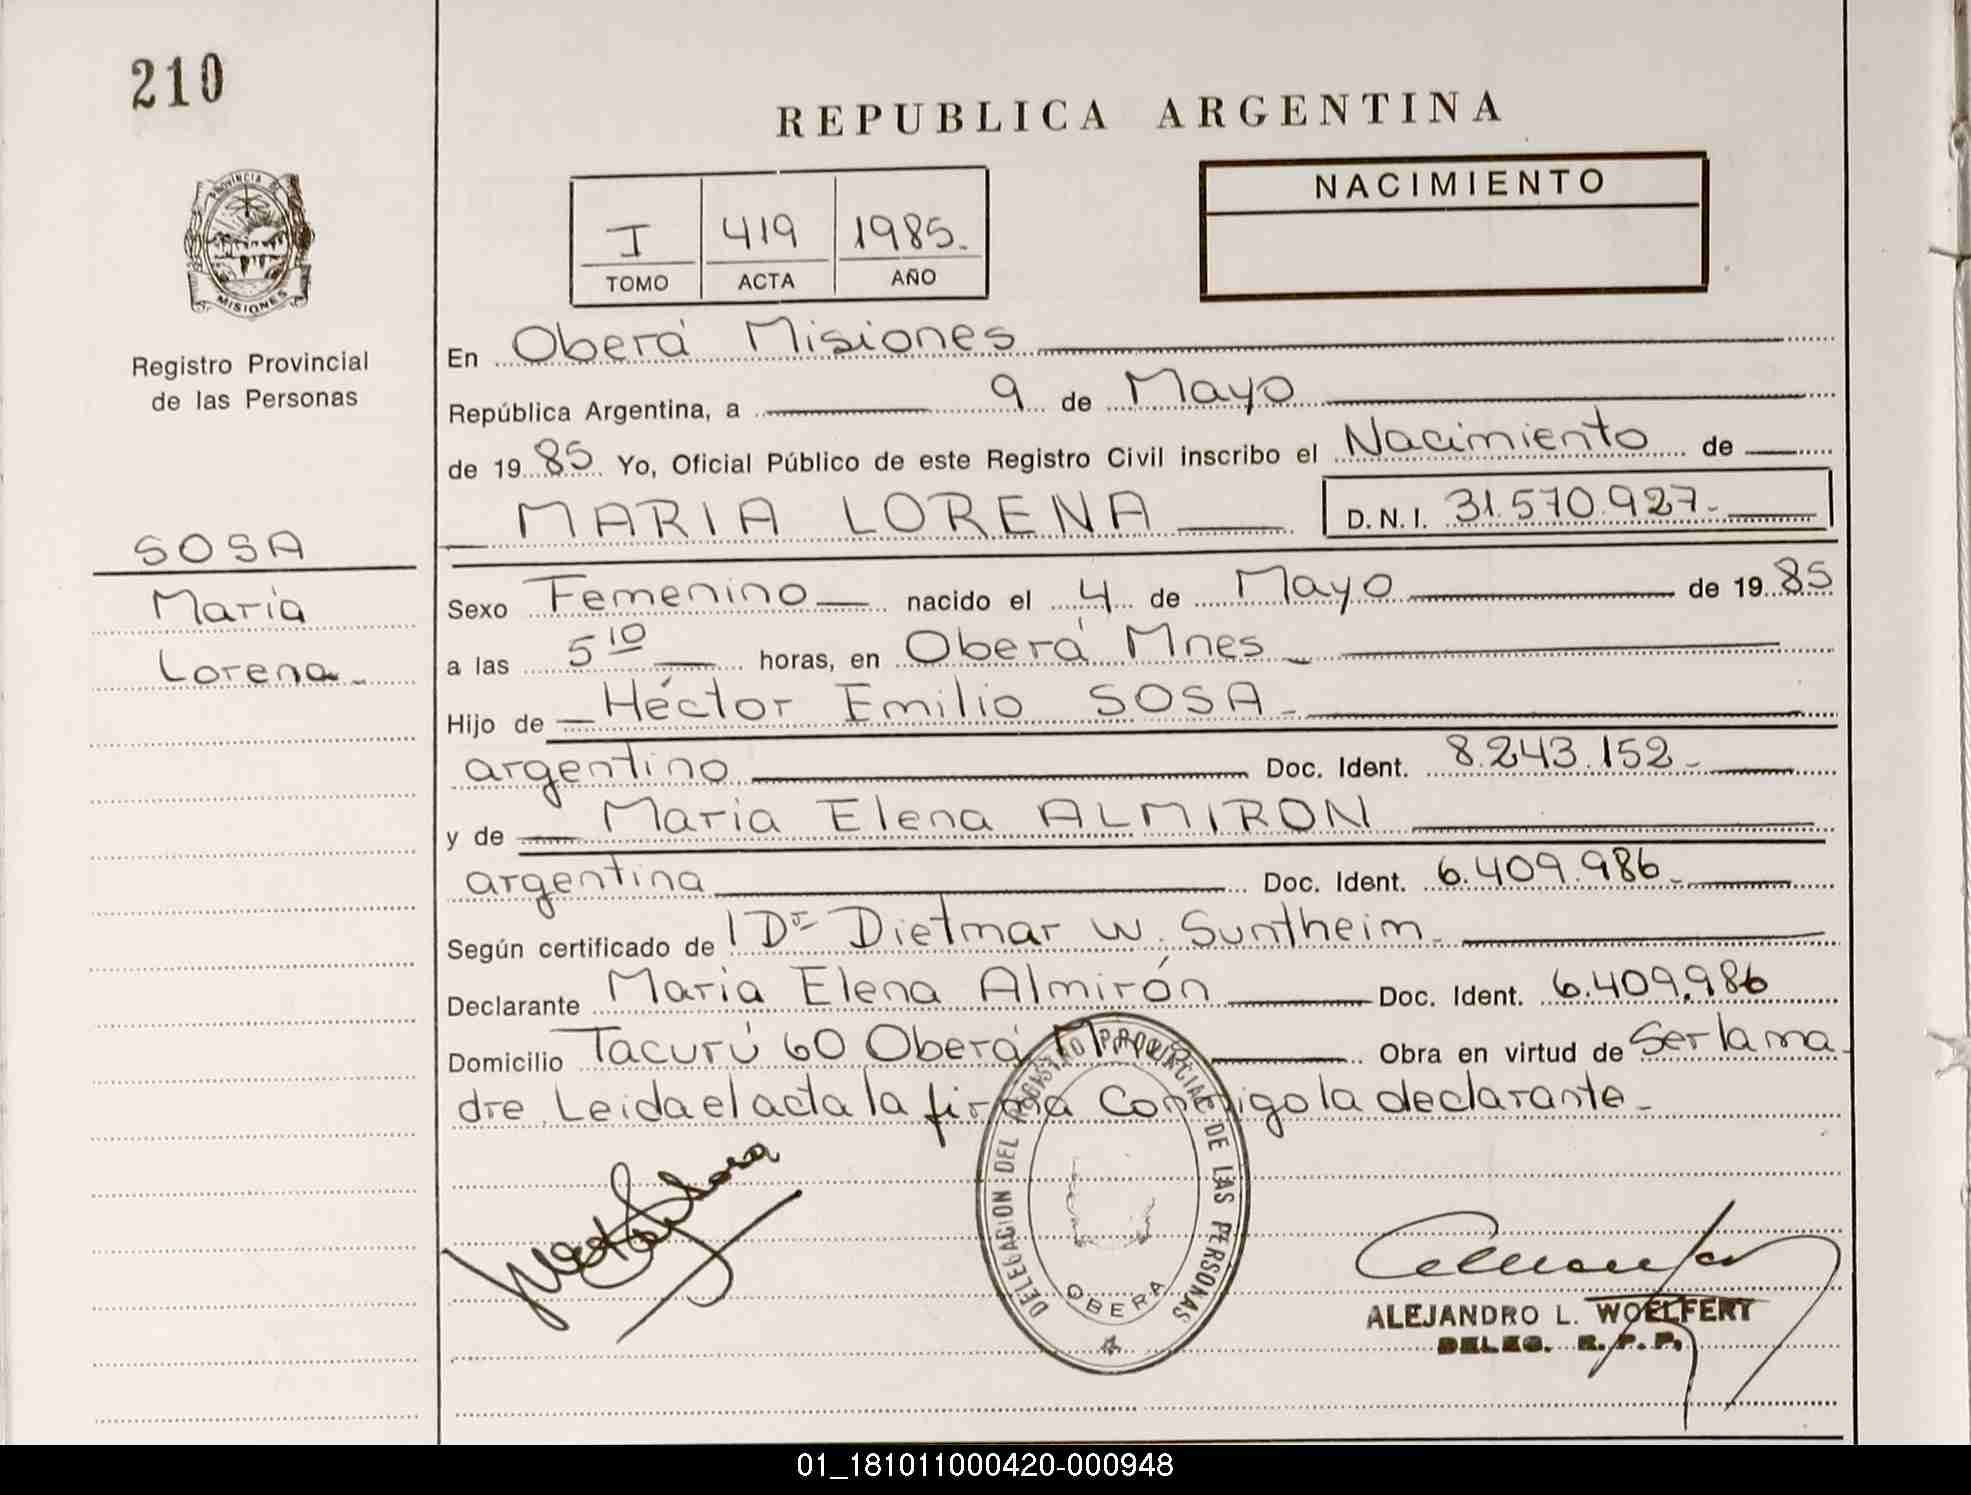 210
REPUBLICA ARGENTINA
PROVINCIA DE
MISIONES
NACIMIENTO
I 419 1985.
TOMO ACTA AÑO
Registro Provincial
de las Personas
SOSA
Maria
Lorena
En Oberá Misiones
República Argentina, a 9 de Mayo
de 1985 Yo, Oficial Público de este Registro Civil inscribo el Nacimiento de
MARIA LORENA D.N.I. 31.570.927
Sexo Femenino nacido el 4 de Mayo de 1985
a las 5 10 horas, en Oberá Mnes
Hijo de Héctor Emilio SOSA
argentino Doc. Ident. 8.243.152
y de Maria Elena ALMIRON
argentina Doc. Ident. 6.409.986
Según certificado de 1 Dr Dietmar W. Suntheim
Declarante Maria Elena Almirón Doc. Ident. 6.409.986
Domicilio Tacurú 60 Oberá Mnes Obra en virtud de Ser la ma
dre. Leida el acta la firma Conmigo la declarante
DELEGACION DEL REGISTRO PROVINCIAL DE LAS PERSONAS
OBERA
ALEJANDRO L. WOELFERT
DELEG. R.P.P.
01_181011000420-000948